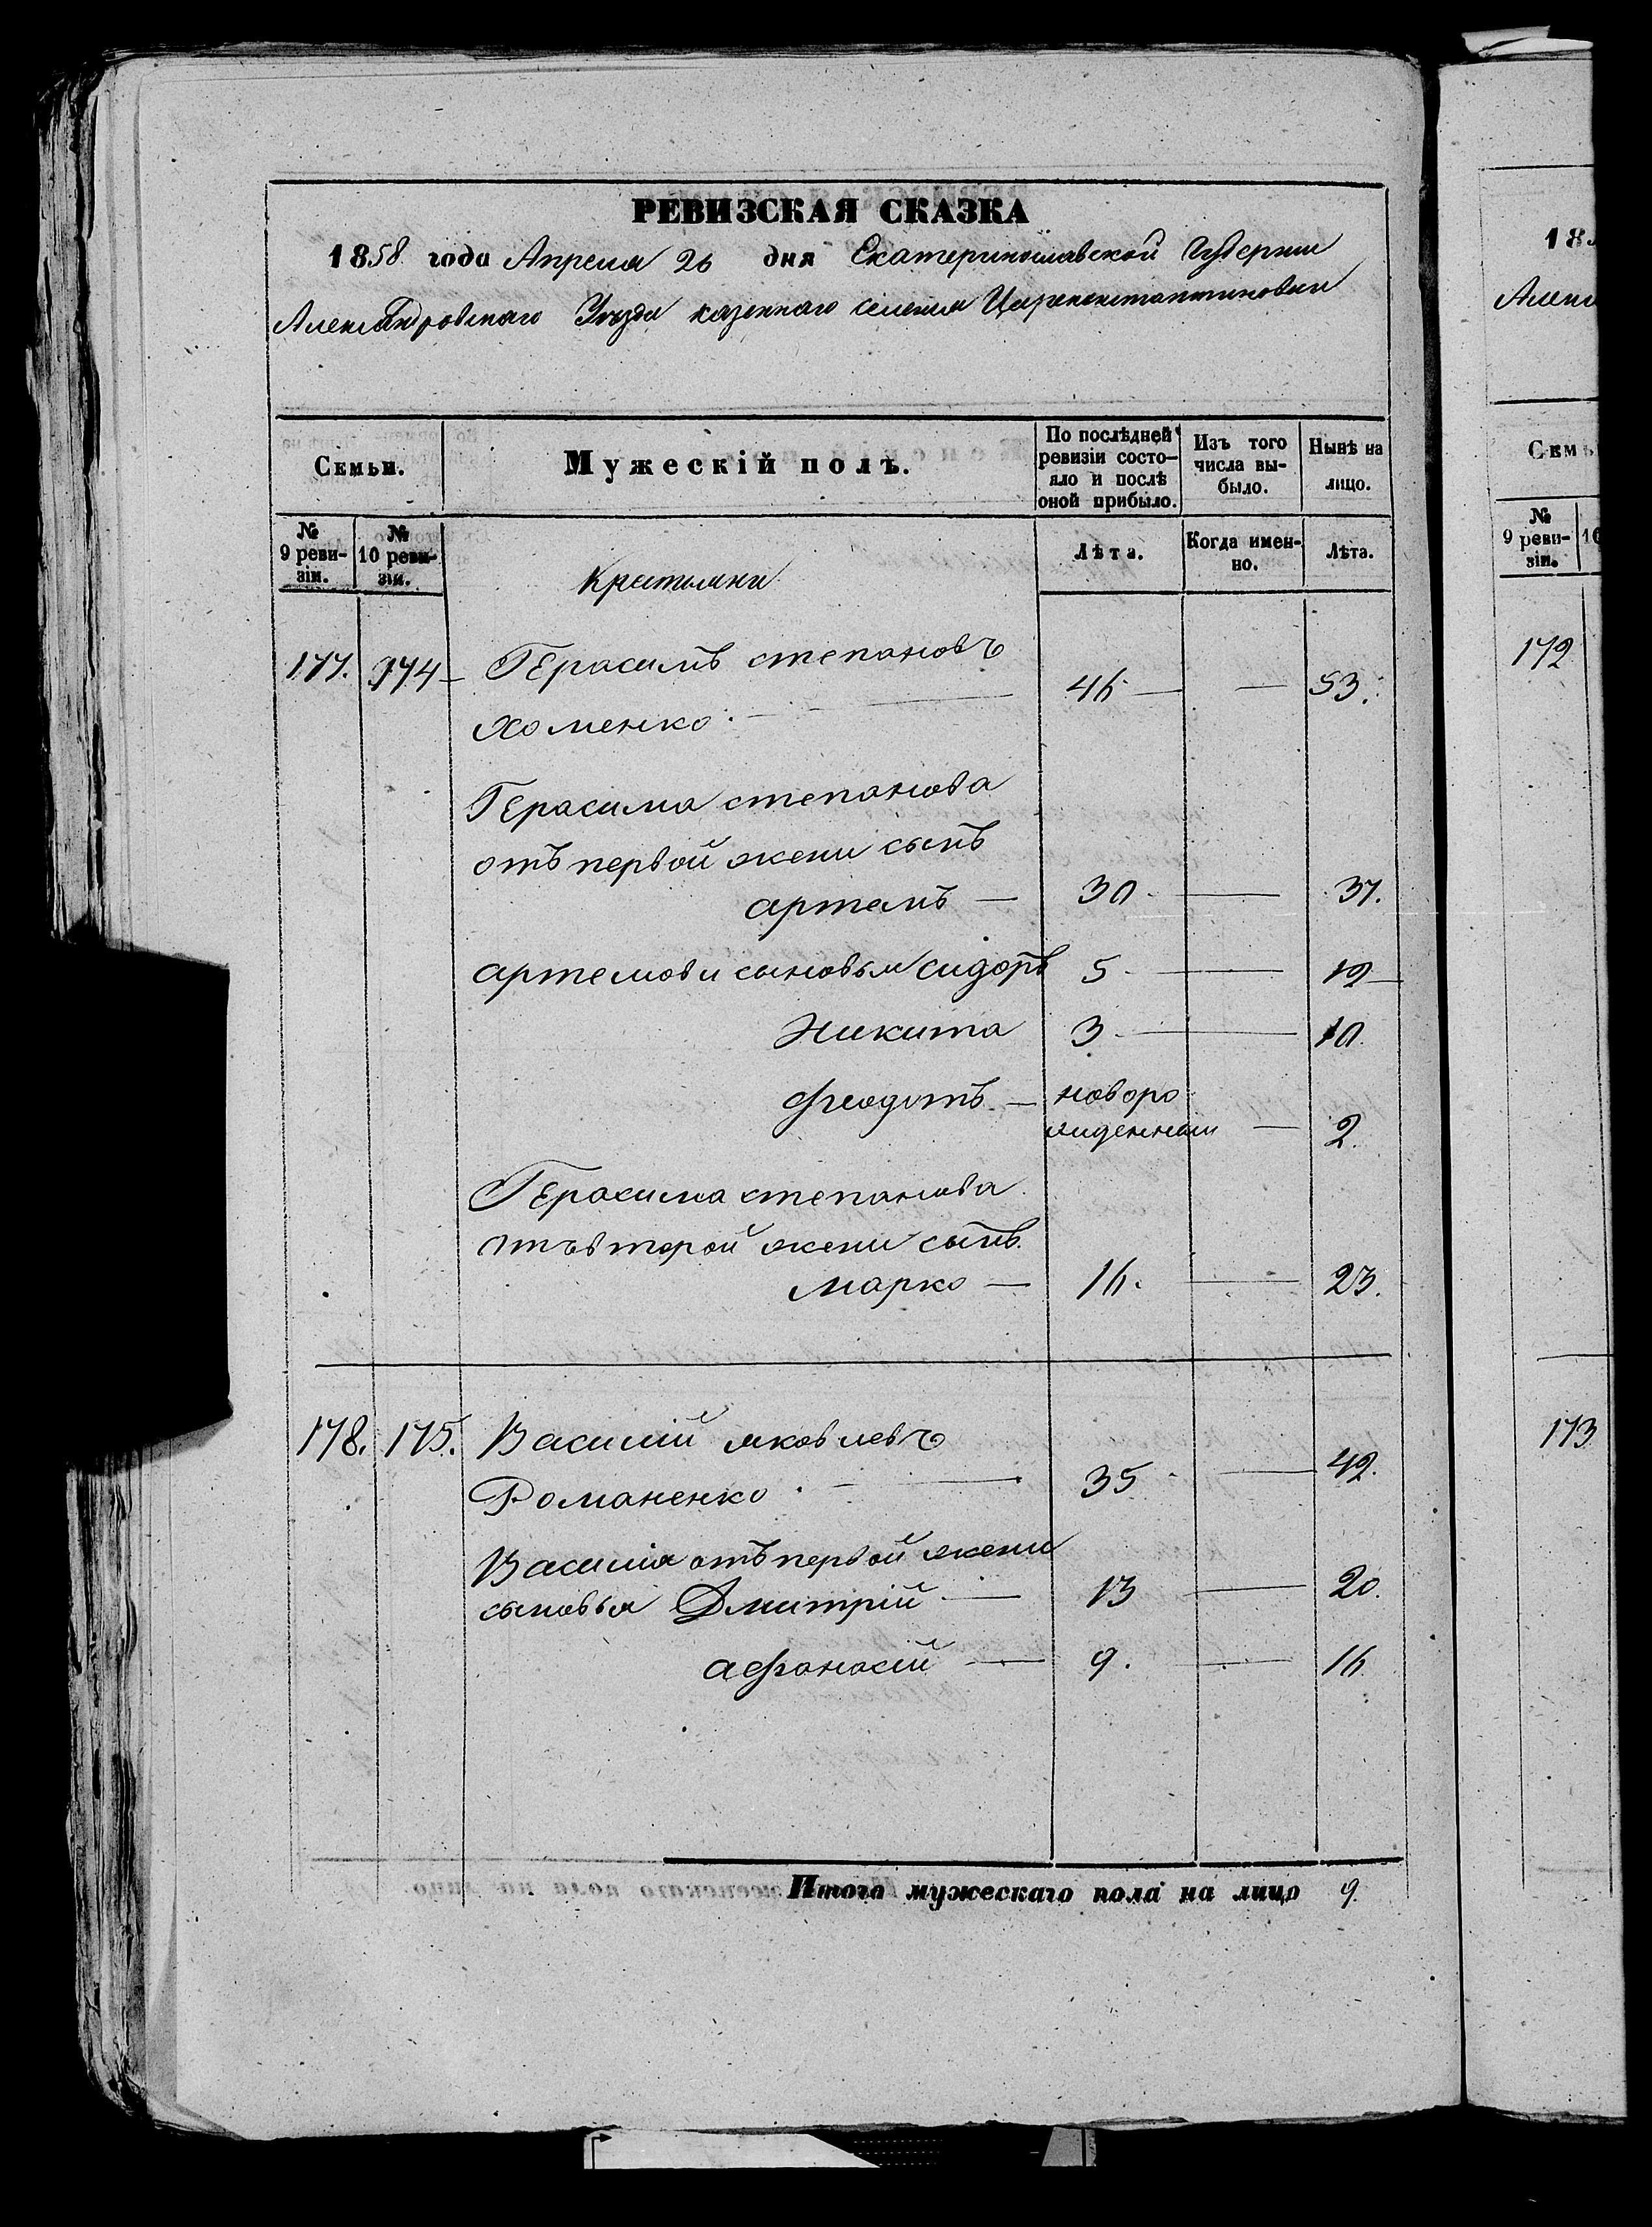 РЕВИЗСКАЯ СКАЗКА
1858 года Апреля 26 дня Екатеринославской Губернии
Александровскаго Уѣзда казеннаго селения Цареконстантиновки
Семьи.
Мужескій полъ.
По послѣдней ревизіи состо-
яло и послѣ оной прибыло.
Изъ того числа вы-
было.
Нынѣ на лицо.
№ 9 реви-
зіи.
№ 10 реви-
зіи.
Крестьяни
Лѣта.
Когда имен-
но.
Лѣта.
177. 174 Герасимъ степановъ
хоменко 46 — 53.
Герасима степанова
отъ первой жени сынъ
артемъ — 30 — 37.
артемови сыновья сидоръ 5 — 12
Никита 3 — 10.
Феодотъ — новоро
жденный — 2.
Герасима степанова
отъ второй жени сынъ
марко — 16. — 23.
178. 175. Василій яковлевъ
Романенко 35 — 42.
Василія отъ первой жени
сыновья Дмитрій — 13 — 20.
афанасій — 9. — 16.
Итого мужескаго пола на лицо 9.
18
Семь
№ 9 реви-
зіи.
172
173